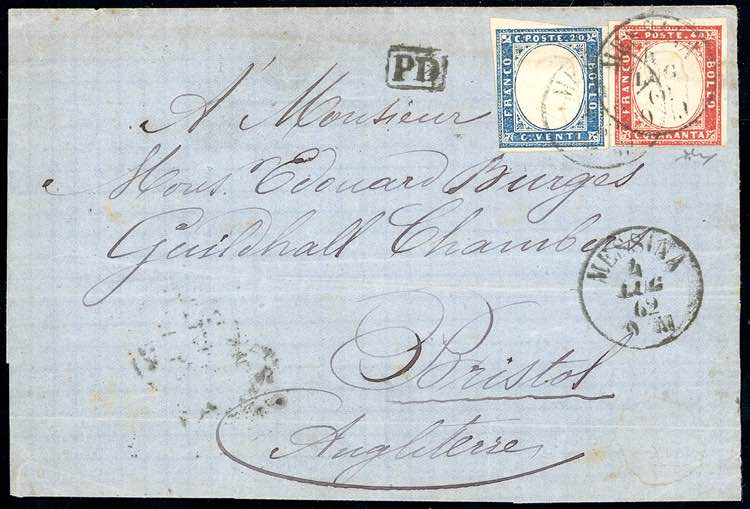 C. POSTE. 20
FRANCO
BOLLO
C. VENTI
C. POSTE. 40
FRANCO
BOLLO
C. QUARANTA
PD
A' Monsieur
Mons. Edouard Burges
Guildhall Chamber
Bristol
Angleterre
MESSINA
4
LUG
62
9 M